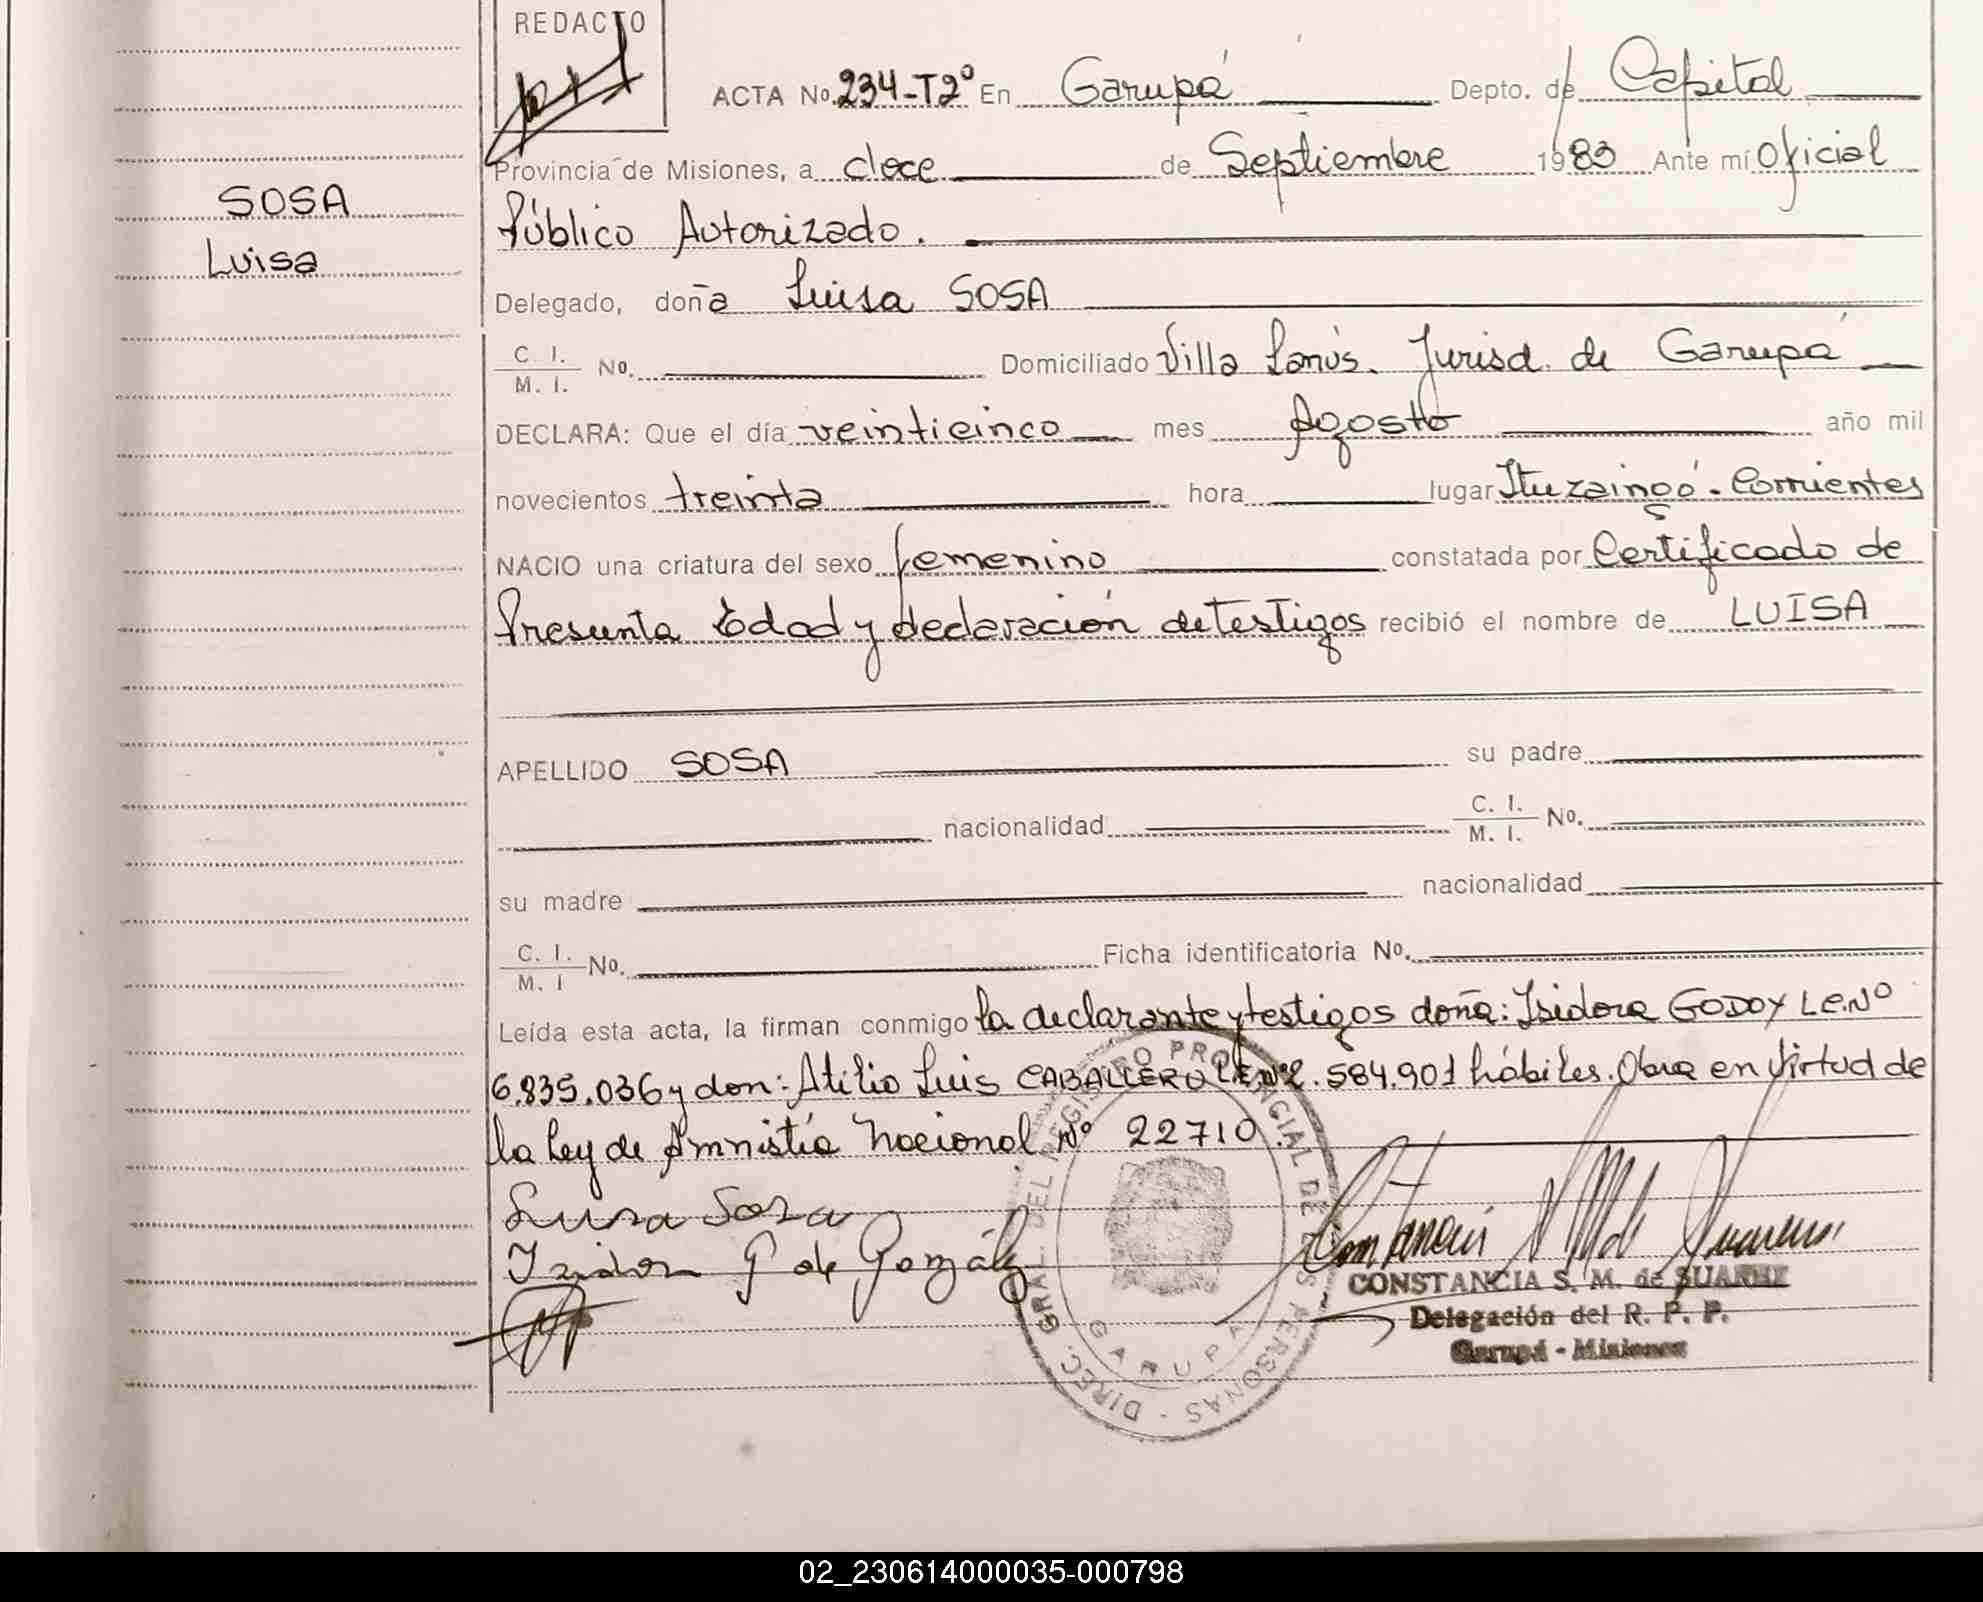 REDACTO
ACTA No. 234-T2º En Garupá Depto. de Capital
Provincia de Misiones, a doce de Septiembre 1983 Ante mí Oficial
Público Autorizado.
SOSA
Luisa
Delegado, doña Luisa SOSA
C. I. / M. I. No. Domiciliado Villa Lanús. Jurisd. de Garupá
DECLARA: Que el día veinticinco mes Agosto año mil
novecientos treinta hora lugar Ituzaingó. Corrientes
NACIO una criatura del sexo femenino constatada por Certificado de
Presunta Edad y declaración de testigos recibió el nombre de LUISA
APELLIDO SOSA su padre
nacionalidad C. I. / M. I. No.
su madre nacionalidad
C. I. / M. I No. Ficha identificatoria No.
Leída esta acta, la firman conmigo la declarante y testigos doña: Isidora GODOY L.C.Nº
6.835.036 y don: Atilio Luis CABALLERO L.E.Nº 2.584.901 hábiles. Obra en virtud de
la Ley de Amnistía Nacional Nº 22710.
Luisa Sosa
Isidora G de Gonzáles
DIREC. GRAL. DEL REGISTRO PROVINCIAL DE LAS PERSONAS -
GARUPA
CONSTANCIA S. M. de SUAREZ
Delegación del R. P. P.
Garupá - Misiones
02_230614000035-000798